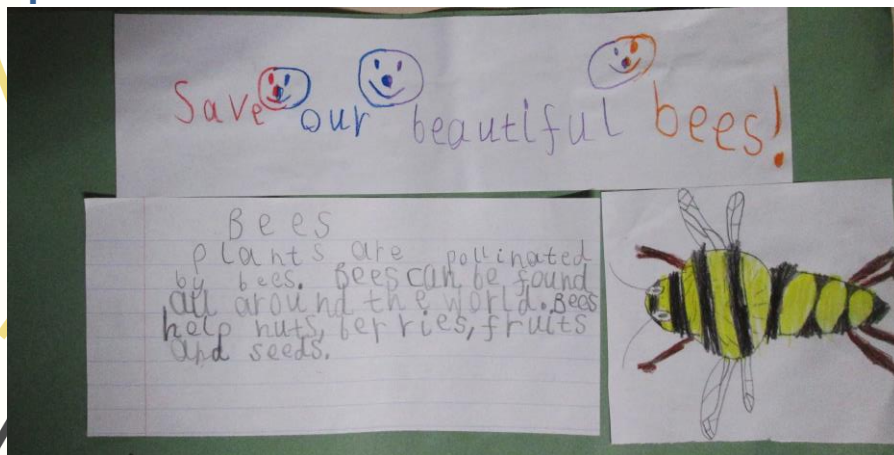 Save our beautiful bees!
Bees
plants are pollinated
by bees. Bees can be found
all around the world. Bees
help nuts, berries, fruits
and seeds.